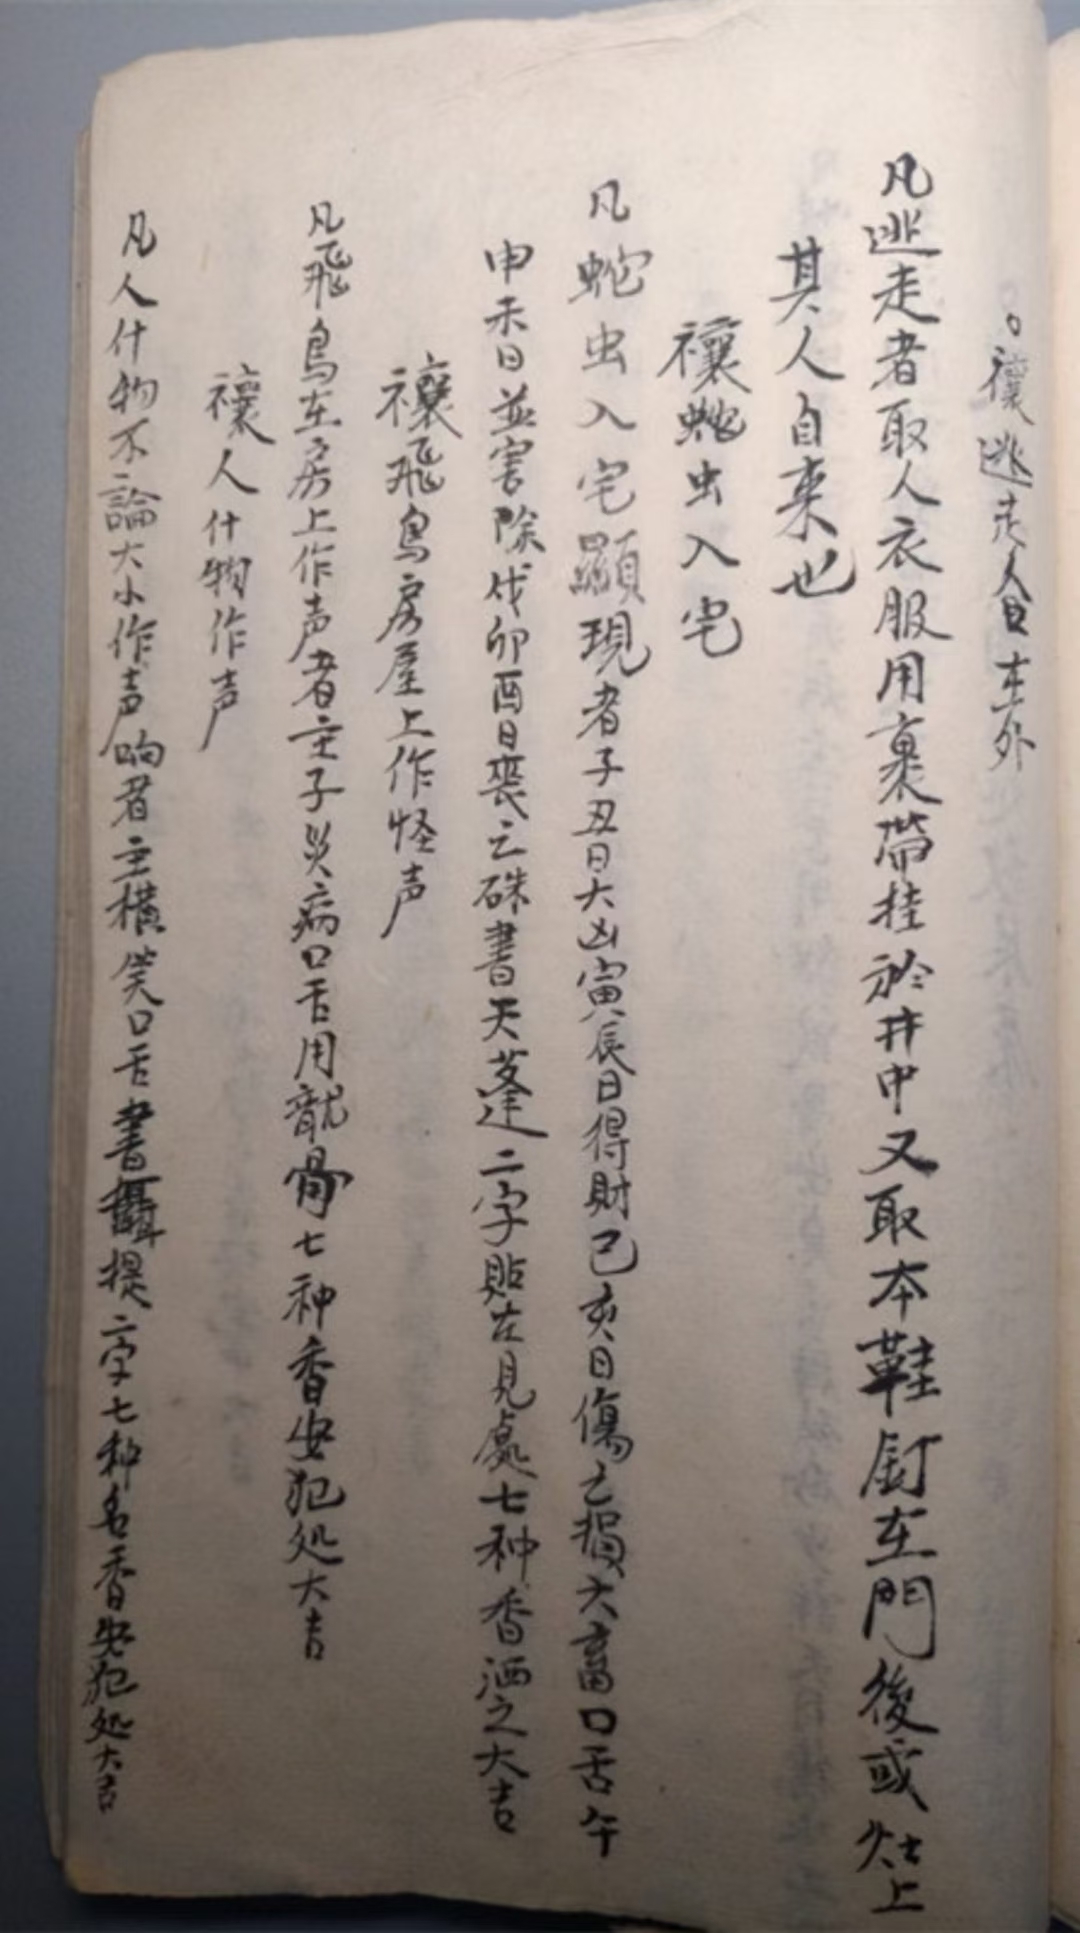 禳逃走人口在外
凡逃走者取人衣服用裹帶挂於井中又取本鞋釘在門後或灶上
其人自来也
禳蛇虫入宅
凡蛇虫入宅顯現者子丑日大凶寅辰日得財己亥日傷亡損六畜口舌午
申未日並害除戌卯酉日喪亡硃書天蓬二字貼在見處七种香洒之大吉
禳飛鳥房屋上作怪声
凡飛鳥在房上作声者主子災病口舌用龍骨七种香安犯処大吉
禳人什物作声
凡人什物不論大小作声响者主橫笑口舌書攝提二字七种名香安犯処大吉